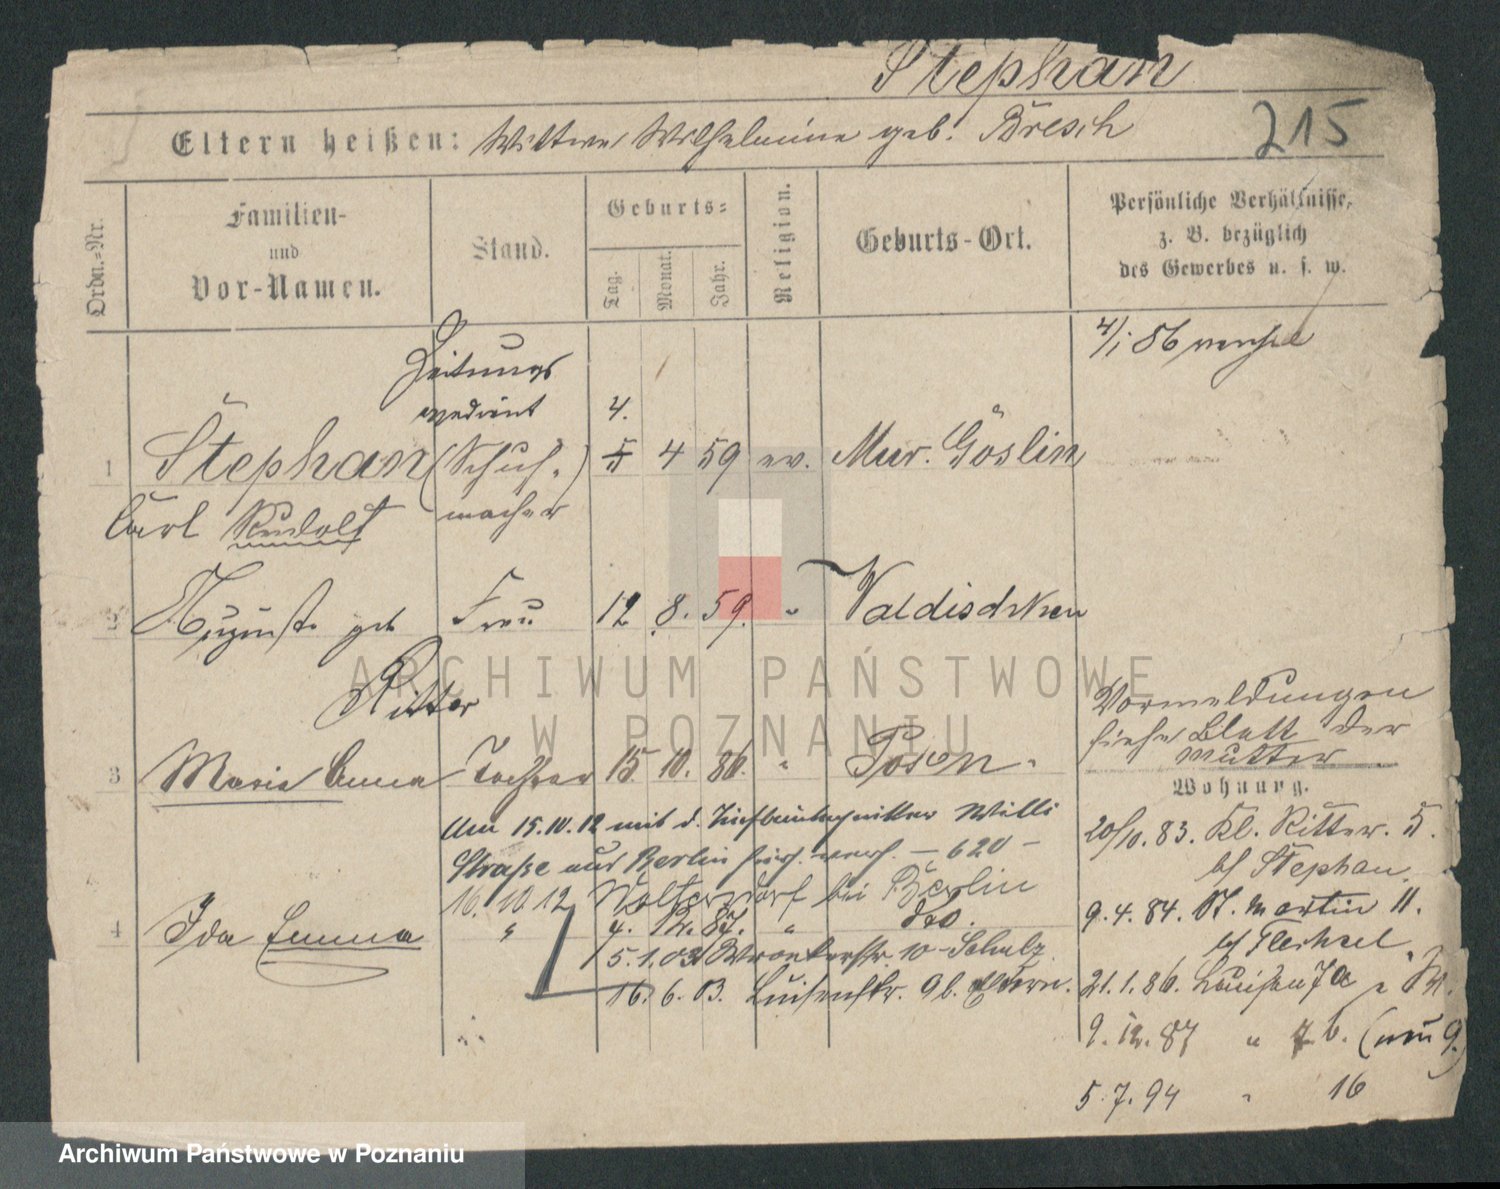 Stephan
215
Eltern heißen: Wittwe Wilhelmine geb. Bresch
Ordn.=Nr.
Familien-
und
Vor-Namen.
Stand.
Geburts=
Tag.
Monat.
Jahr.
Religion.
Geburts-Ort.
Persönliche Verhältnisse,
z. B. bezüglich
des Gewerbes u. s. w.
4/1 86
Zeitungs
4.
1 Stephan (Schuh- ) 5 4 59 ev. Mur. Goslin
Carl Rudolf macher
2 Auguste geb Frau 12 8. 59. "
Ritter
3 Maria Anna Tochter 15. 10. 86. " Posen.
Vormeldungen
siehe Blatt der
Mutter
Wohnung.
Am 15.10.12 mit d. Willi
Straße aus Berlin - 620 -
16. 10 12 Woltersdorf bei Berlin
4 Ida Emma " 4. 12. 87. " do.
5. 1. 03 Wronkerstr. 10 Schulz
16. 6. 03. Luisenstr. 9 b. Eltern.
20/10. 83. Kl. Ritter. 5.
b/ Stephan.
9. 4. 84. St. Martin 11.
b/ Flechsel
21. 1. 86. Louisen 7a
9. 12. 87 " 7 b. (neu 9.)
5. 7. 94 " 16
ARCHIWUM PAŃSTWOWE
W POZNANIU
Archiwum Państwowe w Poznaniu